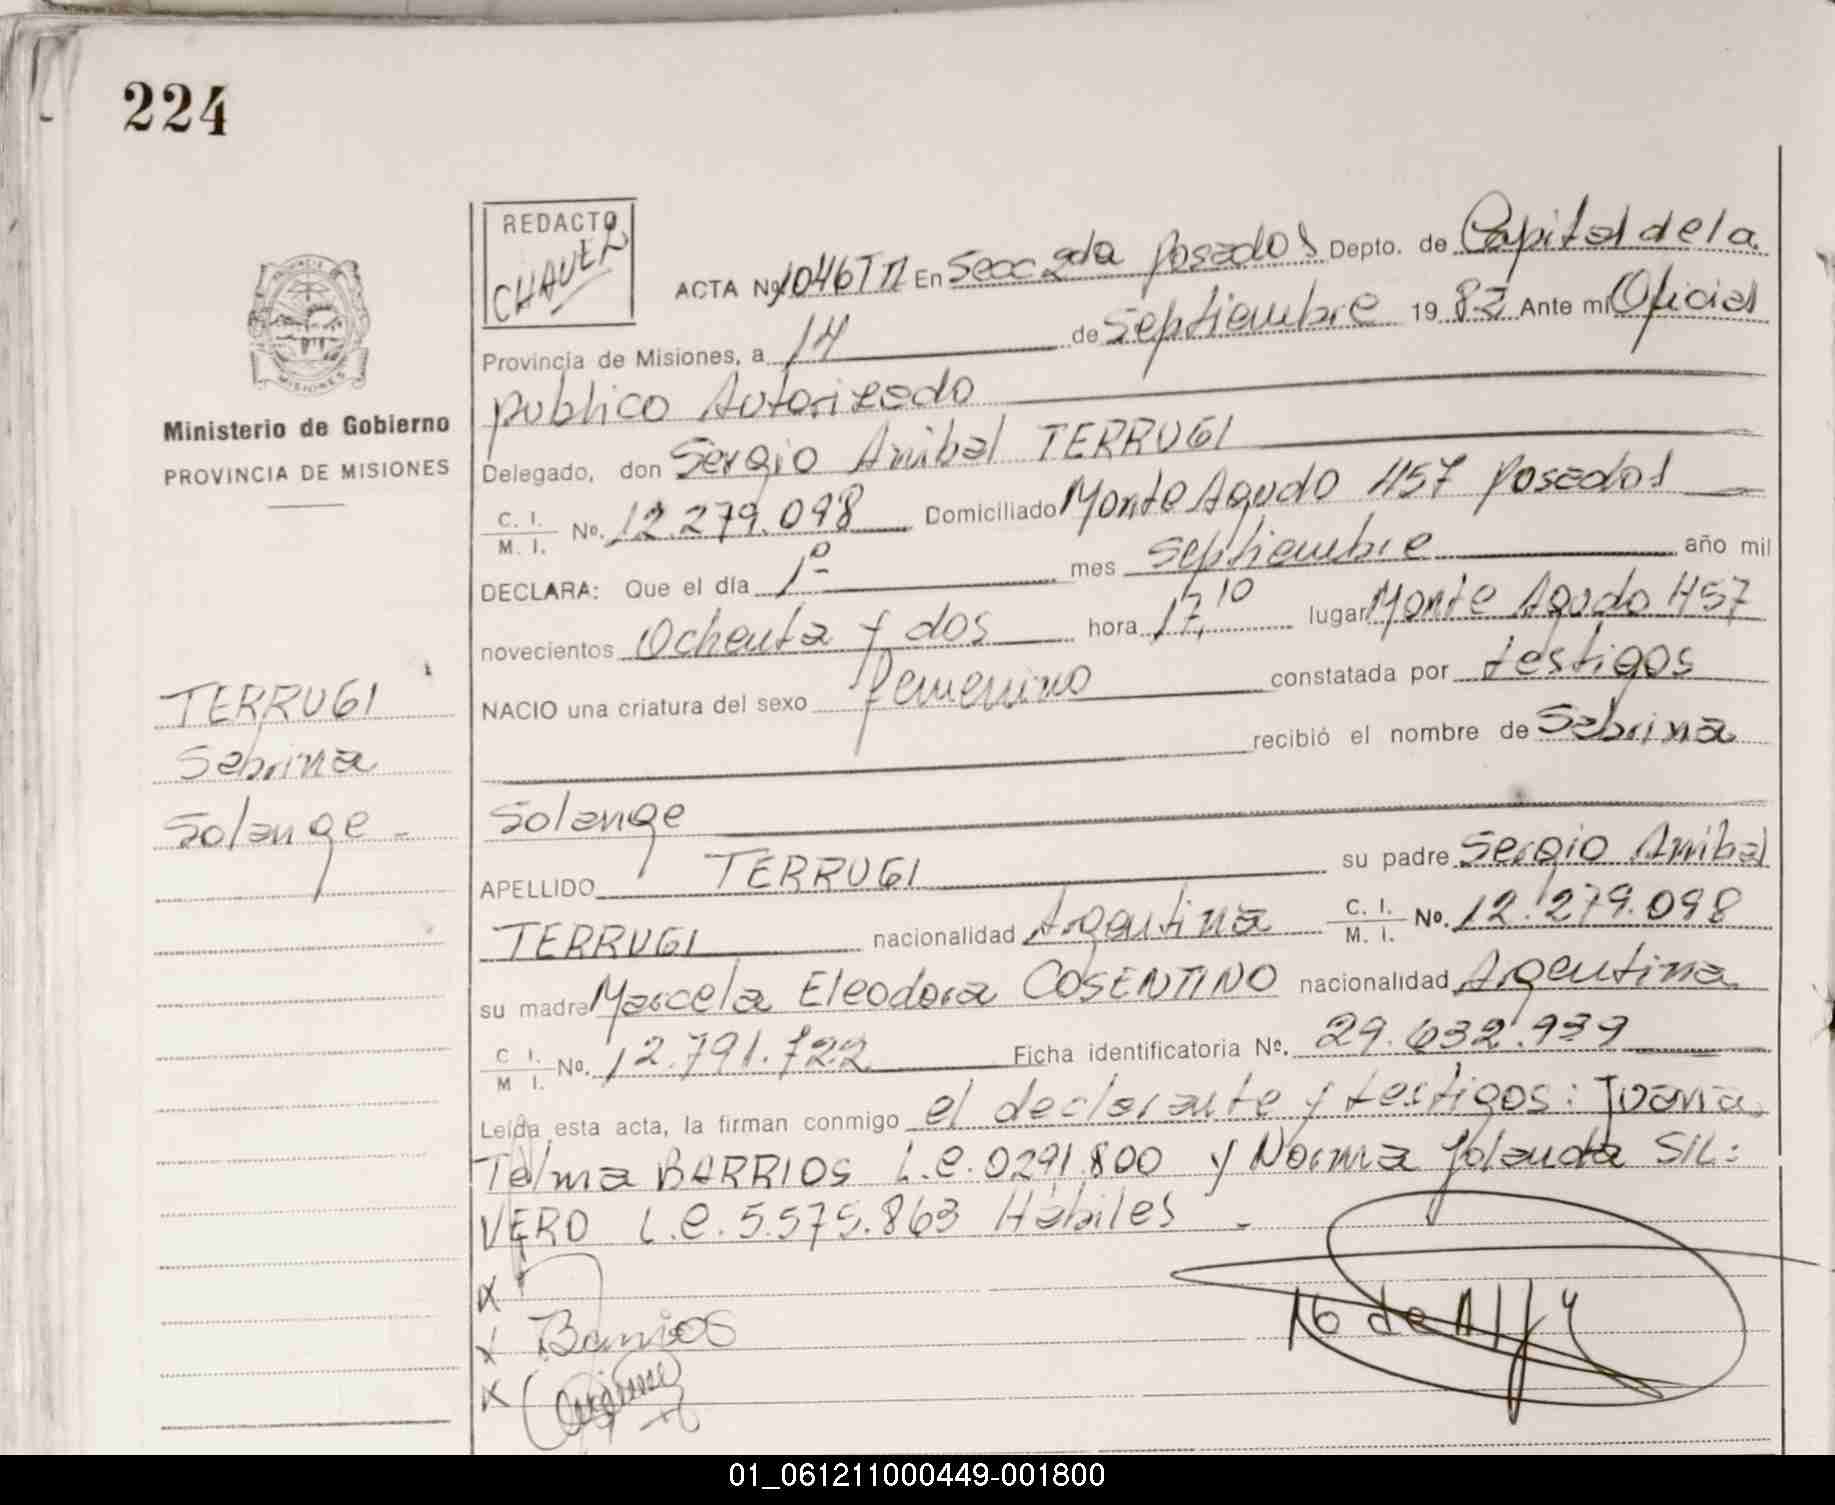 224
REDACTO
CHAVEZ
ACTA Nº 1046 TII En Secc 2da Posadas Depto. de Capital de la
Provincia de Misiones, a 14 de Septiembre 1982 Ante mi Oficial
publico Autorizado
Delegado, don Sergio Anibal TERRUGI
C. I. M. I. Nº. 12.279.098 Domiciliado Monte Agudo 457 Posadas
DECLARA: Que el día 1º mes septiembre año mil
novecientos Ochenta y dos hora 17,10 lugar Monte Agudo 457
NACIO una criatura del sexo femenino constatada por testigos
recibió el nombre de Sabrina
Solange
APELLIDO TERRUGI su padre Sergio Anibal
TERRUGI nacionalidad Argentina C. I. M. I. Nº. 12.279.098
su madre Marcela Eleodora COSENTINO nacionalidad Argentina
C. I. M. I. Nº. 12.791.722 Ficha identificatoria Nº. 29.632.939
Leída esta acta, la firman conmigo el declarante y testigos: Juana
Telma BARRIOS L.C. 0291.800 y Norma Yolanda SIL:
VERO L.C. 5.575.863 Hábiles -
x
x Barrios
x
PROVINCIA DE
MISIONES
Ministerio de Gobierno
PROVINCIA DE MISIONES
TERRUGI
Sabrina
Solange -
01_061211000449-001800